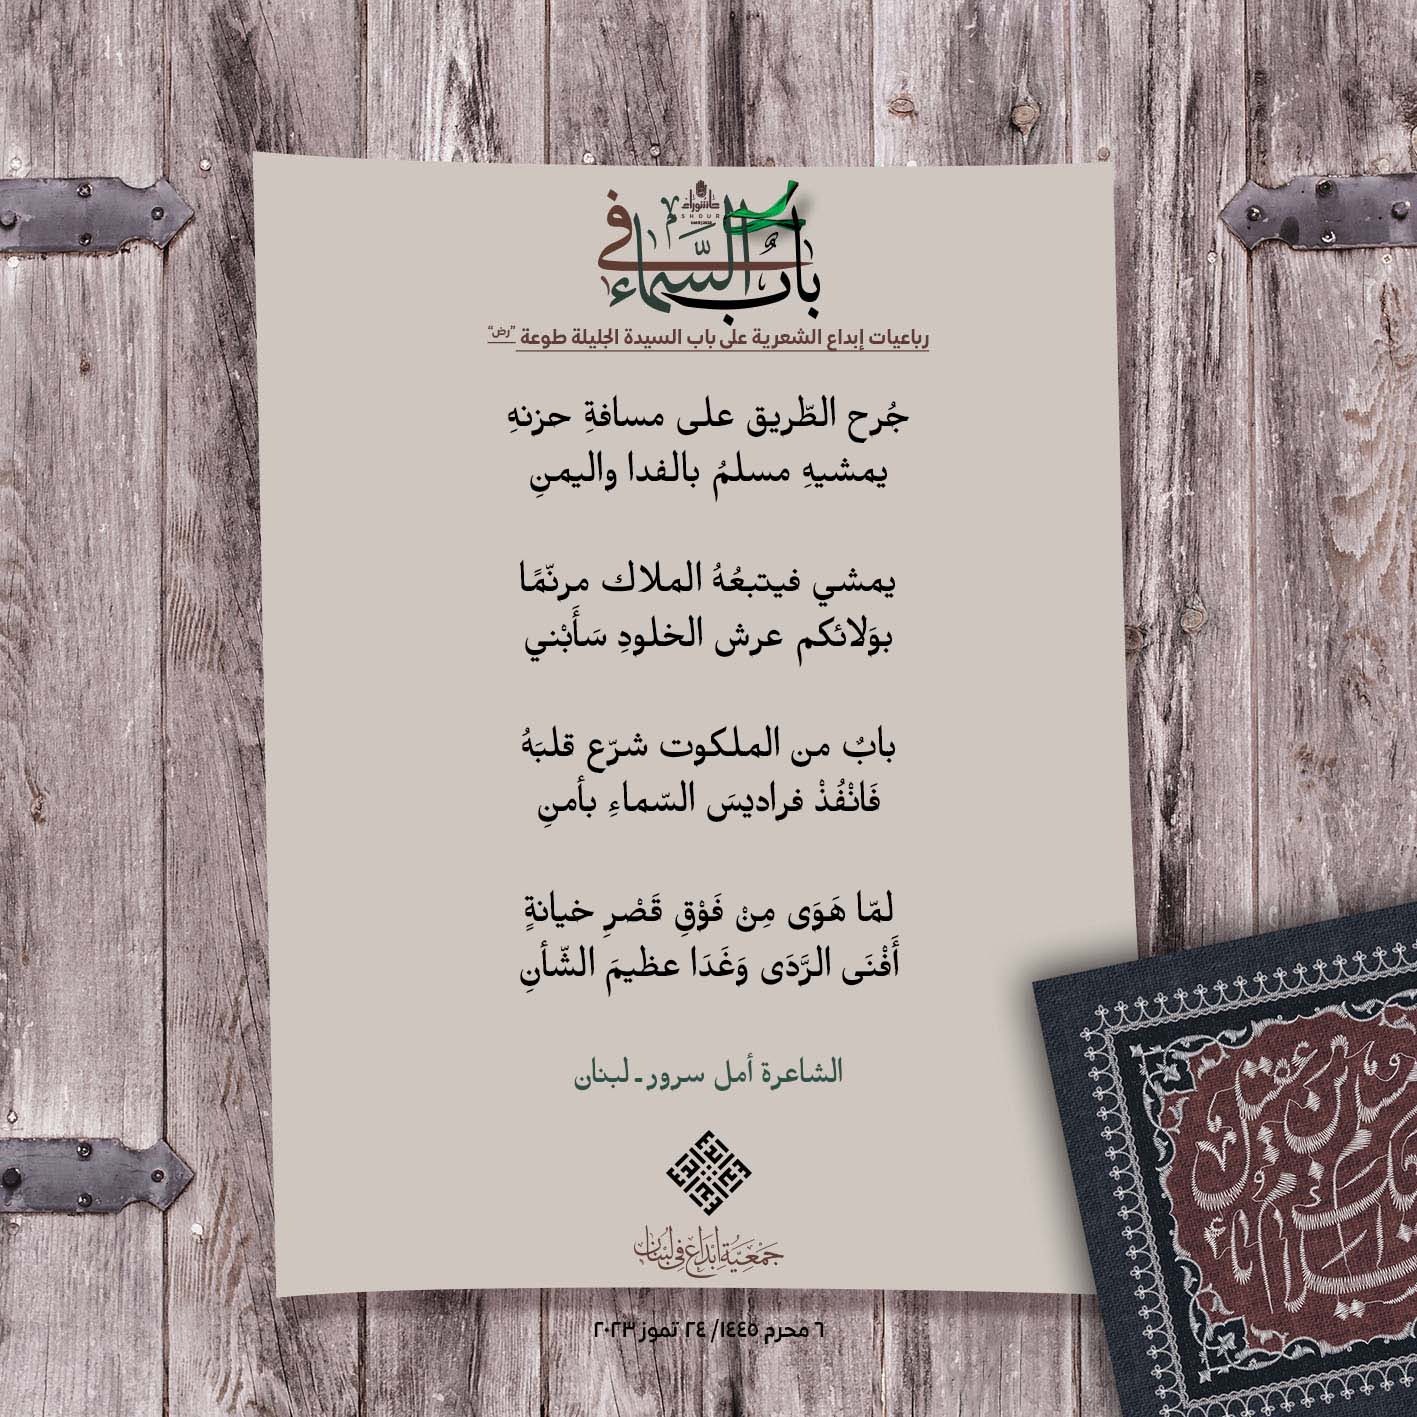 عاشوراء
ASHOURA
باب في السَّماء
رباعيات إبداع الشعرية على باب السيدة الجليلة طوعة "رض"
جُرح الطّريق على مسافةِ حزنهِ
يمشيهِ مسلمُ بالفدا واليمنِ
يمشي فيتبعُهُ الملاك مرنّمًا
بوَلائكم عرش الخلودِ سَأَبْني
بابٌ من الملكوت شرّع قلبَهُ
فَانْفُذْ فراديسَ السّماءِ بأمنِ
لمّا هَوَى مِنْ فَوْقِ قَصْرِ خيانةٍ
أَفْنَى الرَّدَى وَغَدَا عظيمَ الشّأنِ
الشاعرة أمل سرور ـ لبنان
جمعية إبداع في لبنان
٦ محرم ١٤٤٥/ ٢٤ تموز ٢٠٢٣
السلام عليك يا مسلم بن عقيل